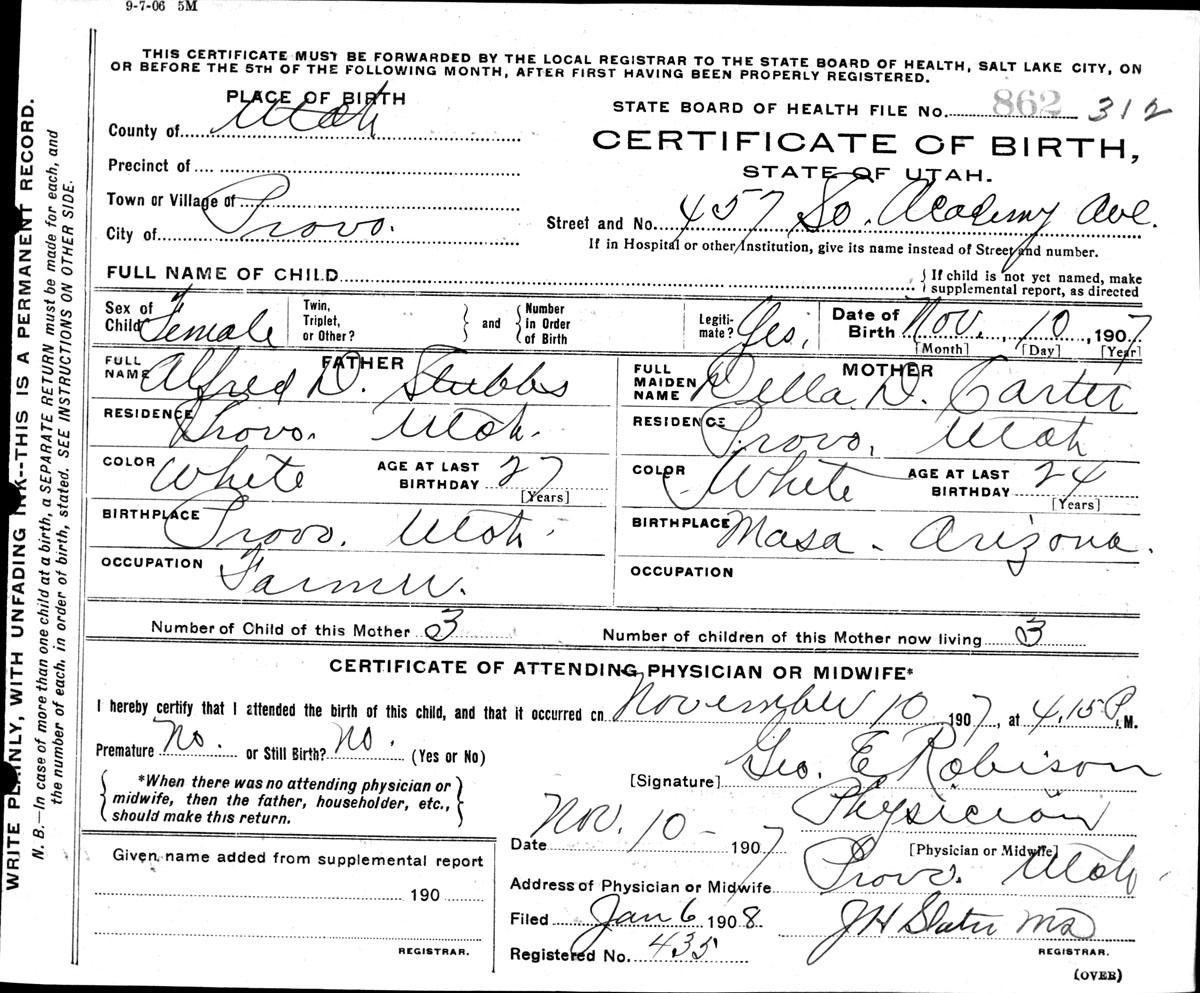 9-7-06 5M
THIS CERTIFICATE MUST BE FORWARDED BY THE LOCAL REGISTRAR TO THE STATE BOARD OF HEALTH, SALT LAKE CITY, ON
OR BEFORE THE 5TH OF THE FOLLOWING MONTH, AFTER FIRST HAVING BEEN PROPERLY REGISTERED.
WRITE PLAINLY, WITH UNFADING INK--THIS IS A PERMANENT RECORD.
N. B.—In case of more than one child at a birth, a SEPARATE RETURN must be made for each, and
the number of each, in order of birth, stated. SEE INSTRUCTIONS ON OTHER SIDE.
PLACE OF BIRTH
County of Utah
Precinct of
Town or Village of
City of Provo.
STATE BOARD OF HEALTH FILE No. 862 312
CERTIFICATE OF BIRTH,
STATE OF UTAH.
Street and No. 457 So. Academy Ave.
If in Hospital or other Institution, give its name instead of Street and number.
FULL NAME OF CHILD
{If child is not yet named, make
supplemental report, as directed
Sex of Child Female
Twin, Triplet, or Other? } and { Number in Order of Birth
Legiti-mate? Yes.
Date of Birth Nov. 10, 1907
[Month] [Day] [Year]
FATHER
FULL NAME Alfred D. Stubbs
RESIDENCE Provo. Utah.
COLOR White AGE AT LAST BIRTHDAY 27
[Years]
BIRTHPLACE Provo. Utah.
OCCUPATION Farmer.
MOTHER
FULL MAIDEN NAME Della D. Carter
RESIDENCE Provo, Utah
COLOR White AGE AT LAST BIRTHDAY 24
[Years]
BIRTHPLACE Masa - Arizona.
OCCUPATION
Number of Child of this Mother 3 Number of children of this Mother now living 3
CERTIFICATE OF ATTENDING PHYSICIAN OR MIDWIFE*
I hereby certify that I attended the birth of this child, and that it occurred on November 10 1907, at 4.15 P.M.
Premature No. or Still Birth? No. (Yes or No)
{ *When there was no attending physician or
midwife, then the father, householder, etc., }
should make this return.
[Signature] Geo. E Robison
Physician
[Physician or Midwife]
Date Nov. 10 - 1907
Address of Physician or Midwife Provo. Utah.
Given name added from supplemental report
190
REGISTRAR.
Filed Jan 6 1908
Registered No. 435
J H Slater MD
REGISTRAR.
(OVER)